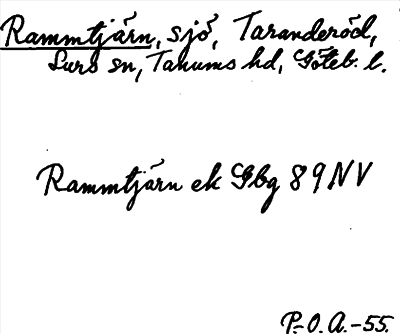 Rammtjärn, sjö, Taranderöd,
Lurs sn, Tanums hd, Göteb. l.
Rammtjärn ek Gbg 89NV
P.-O. A. -55.